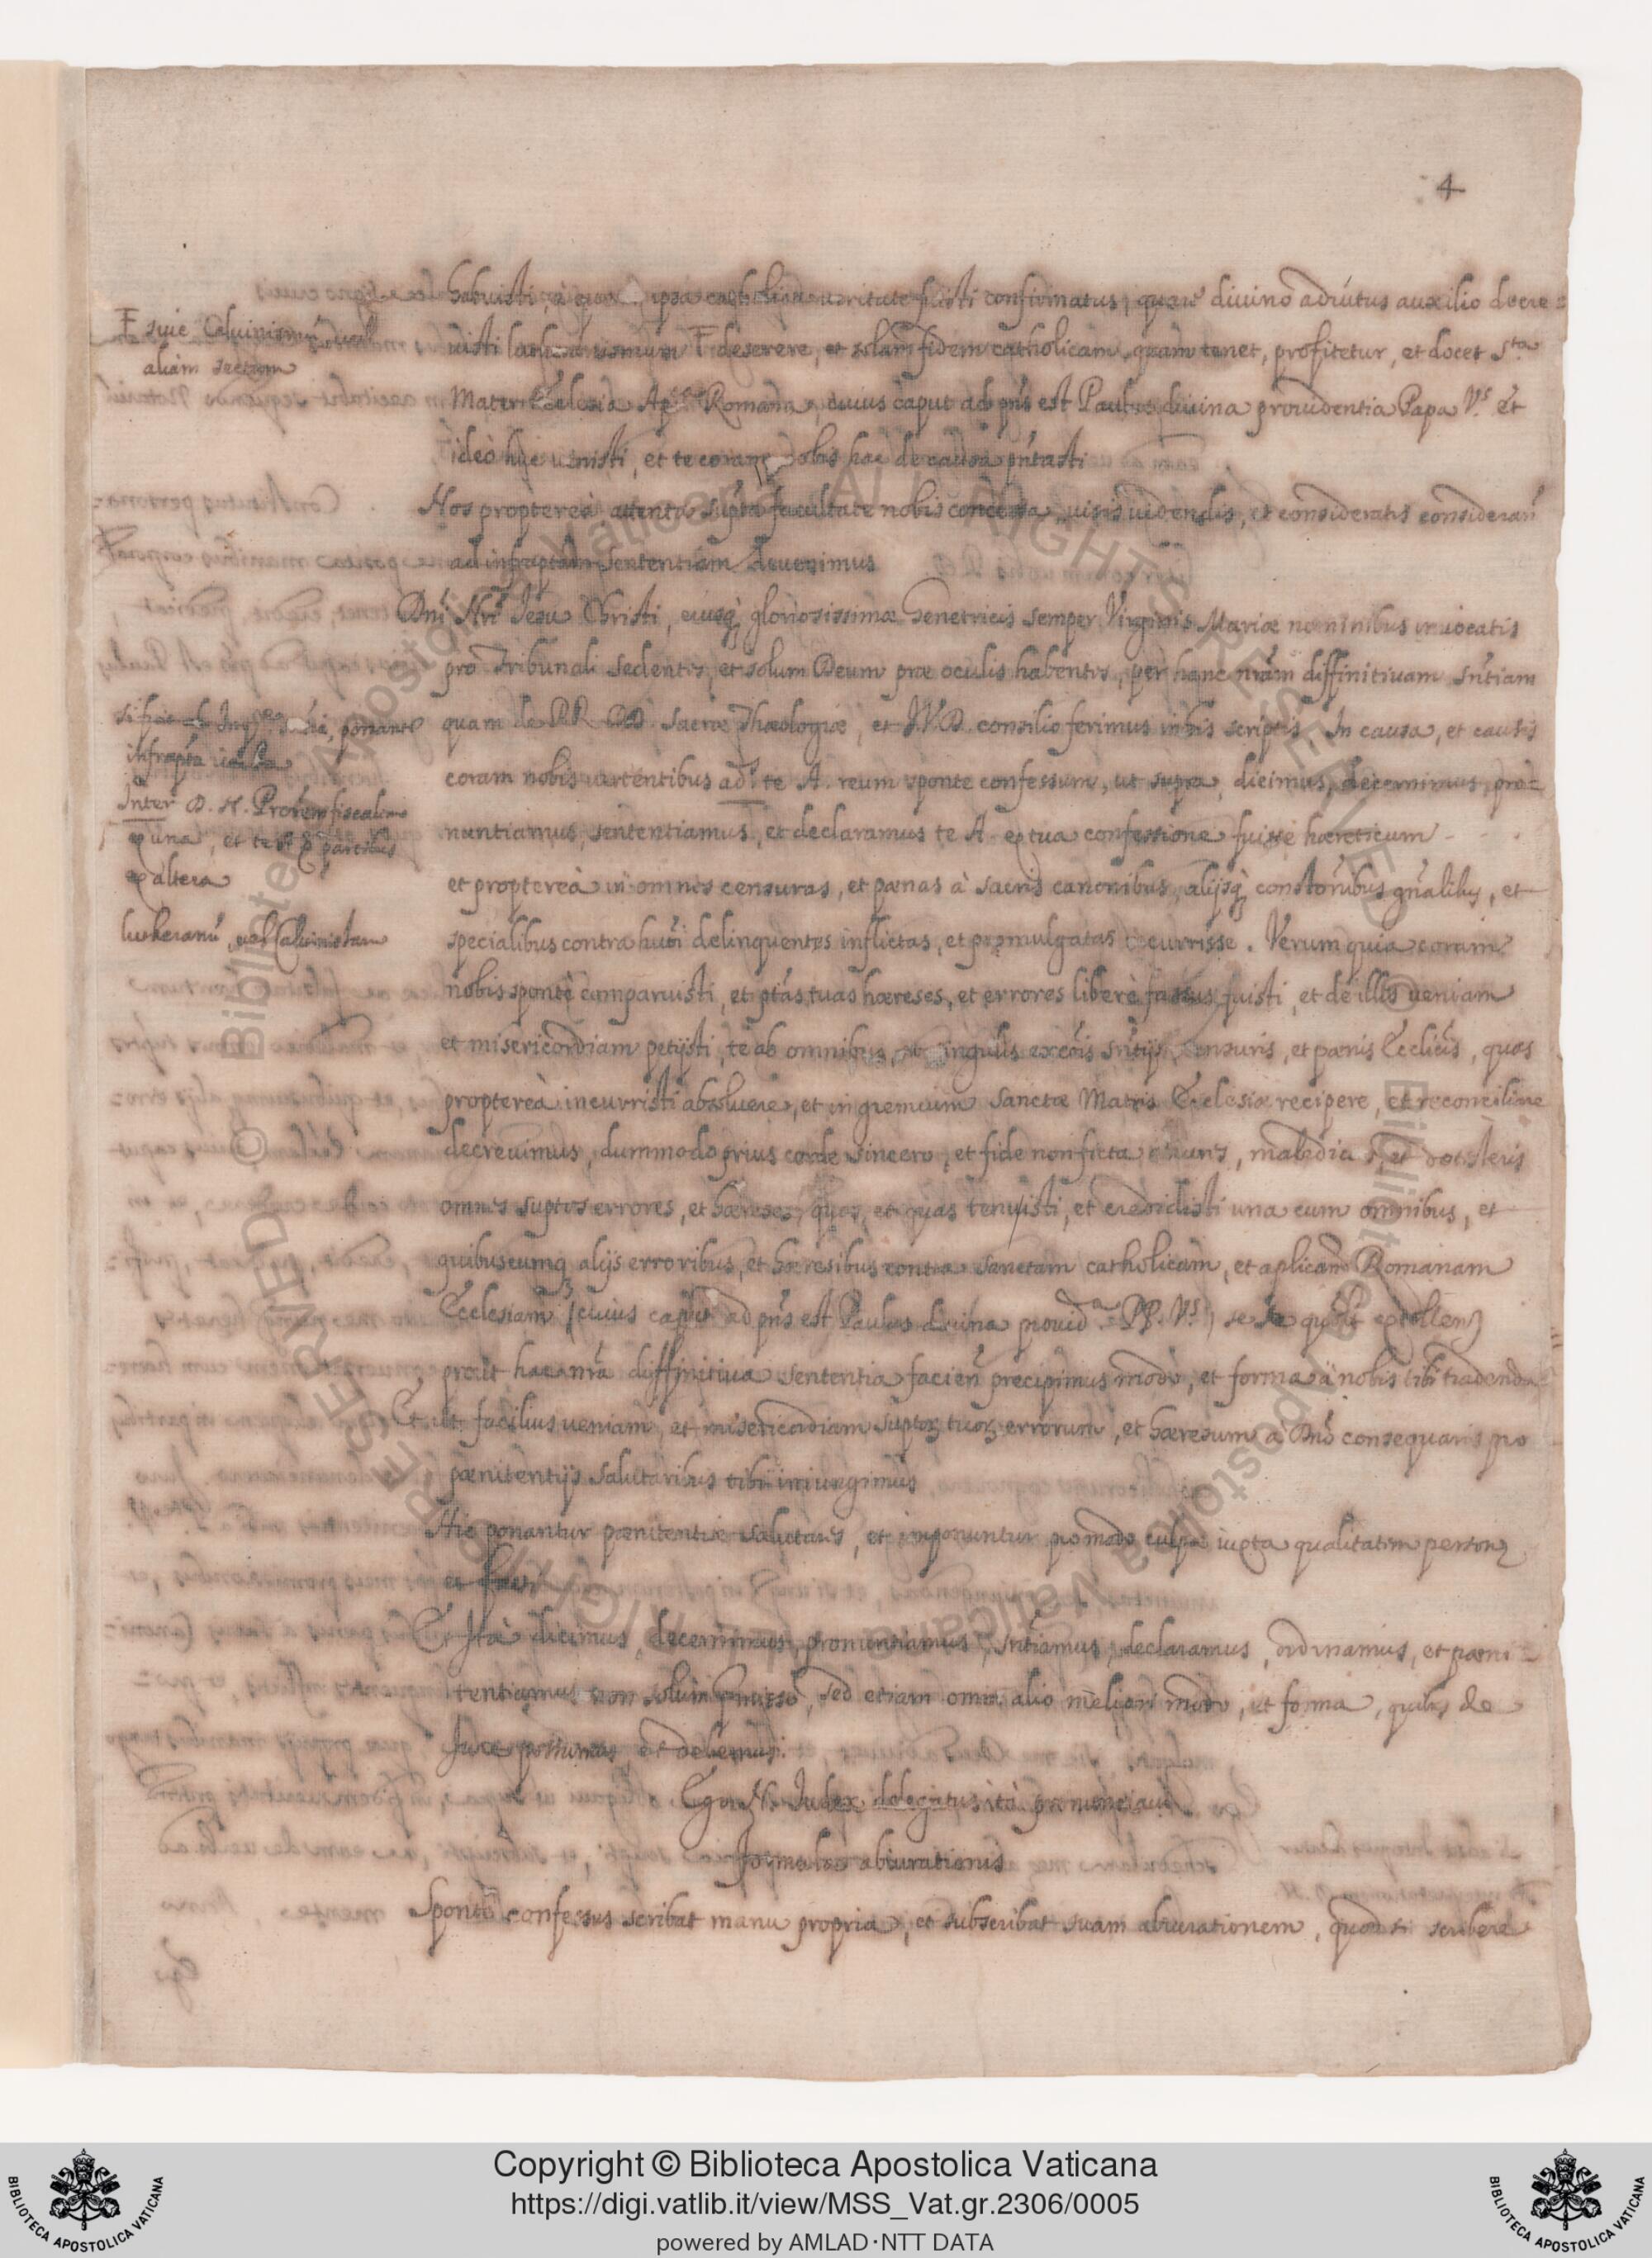 4
habuisti, à quo ipsa catholica ueritate fuisti confirmatus, quare diuino adiutus auxilio decre=
uisti lutheranismum deserere, et solam fidem catholicam, quam tenet, profitetur, et docet S.ta
Mater Ecclesia Ap.ca Romana, cuius caput ad pñs est Paulus diuina prouidentia Papa V.s et
ideò huc uenisti, et te coram nobis hac de causa pñtasti
Nos proptereà attenta supta facultate nobis concessa, uisis uidendis, et consideratis considerañ
ad infraptam sententiam deuenimus
Dñi Nrĩ Iesu Christi, eiusq̃ gloriosissimæ Genetricis semper Virginis Mariæ nominibus inuocatis
pro Tribunali sedentes, et solum Deum præ oculis habentes, per hanc nrãm diffinitiuam sñtiam
quam de RR. DD. sacræ Theologiæ, et I.V.D. consilio ferimus in his scriptis In causa, et causis
coram nobis uertentibus ads. te A. reum sponte confessum, ut supra, dicimus, decernimus, pro=
nuntiamus, sententiamus, et declaramus te A. ex tua confessione fuisse hæreticum
et proptereà in omnes censuras, et pænas à sacris canonibus, alijsq̃ constõnibus gñalibus, et
specialibus contra huiõi delinquentes inflictas, et promulgatas incurrisse. Verum quia coram
nobis sponte comparuisti, et ptãs tuas hæreses, et errores liberè fassus fuisti, et de illis ueniam
et misericordiam petijsti, te ab omnibus, et singulis excõis sñtijs, censuris, et pænis Ecclicis, quas
proptereà incurristi absoluere, et in gremium Sanctæ Matris Ecclesiæ recipere, et reconciliare
decreuimus, dummodo prius corde sincero, et fide non ficta abiures, maledicas, et detesteris
omnes suptos errores, et hæreses, quos, et quas tenuisti, et credidisti una cum omnibus, et
quibuscumq̃ alijs erroribus, et hæresibus contra sanctam catholicam, et aplicam Romanam
Ecclesiam (cuius caput ad pñs est Paulus diuina prouid.a PP. V.s)
prout hac nrã diffinitiua sententia facieñ precipimus modo, et forma à nobis tibi tradenda
Et ut facilius ueniam, et misericordiam suptoꝝ tuoꝝ errorum, et hæresum à Dño consequaris pro
pænitentijs salutaribus tibi iniungimus
Hic ponantur pænitentiæ salutares, et imponuntur pro modo culpæ iuxta qualitatem personæ
et facti
Et Ità dicimus, decernimus, pronuntiamus, sñtiamus, declaramus, ordinamus, et pæni=
tentiamus non solum premisso, sed etiam omni alio meliori modo, et forma, quibus de
Iure possumus, et debemus.
Ego N. Iudex delegatus ità pronunciaui
Formula abiurationis
Sponte confessus scribat manu propria, et subscribat suam abiurationem, quod si scribere
siue Caluinismũ, uel
aliam sectam
infrapta uerba
Inter D. N. Prõrem fiscalem
ex una, et te A partibus
ex altera
lutheranũ, uel Caluinistam
Copyright © Biblioteca Apostolica Vaticana
https://digi.vatlib.it/view/MSS_Vat.gr.2306/0005
powered by AMLAD·NTT DATA
BIBLIOTECA APOSTOLICA VATICANA
BIBLIOTECA APOSTOLICA VATICANA